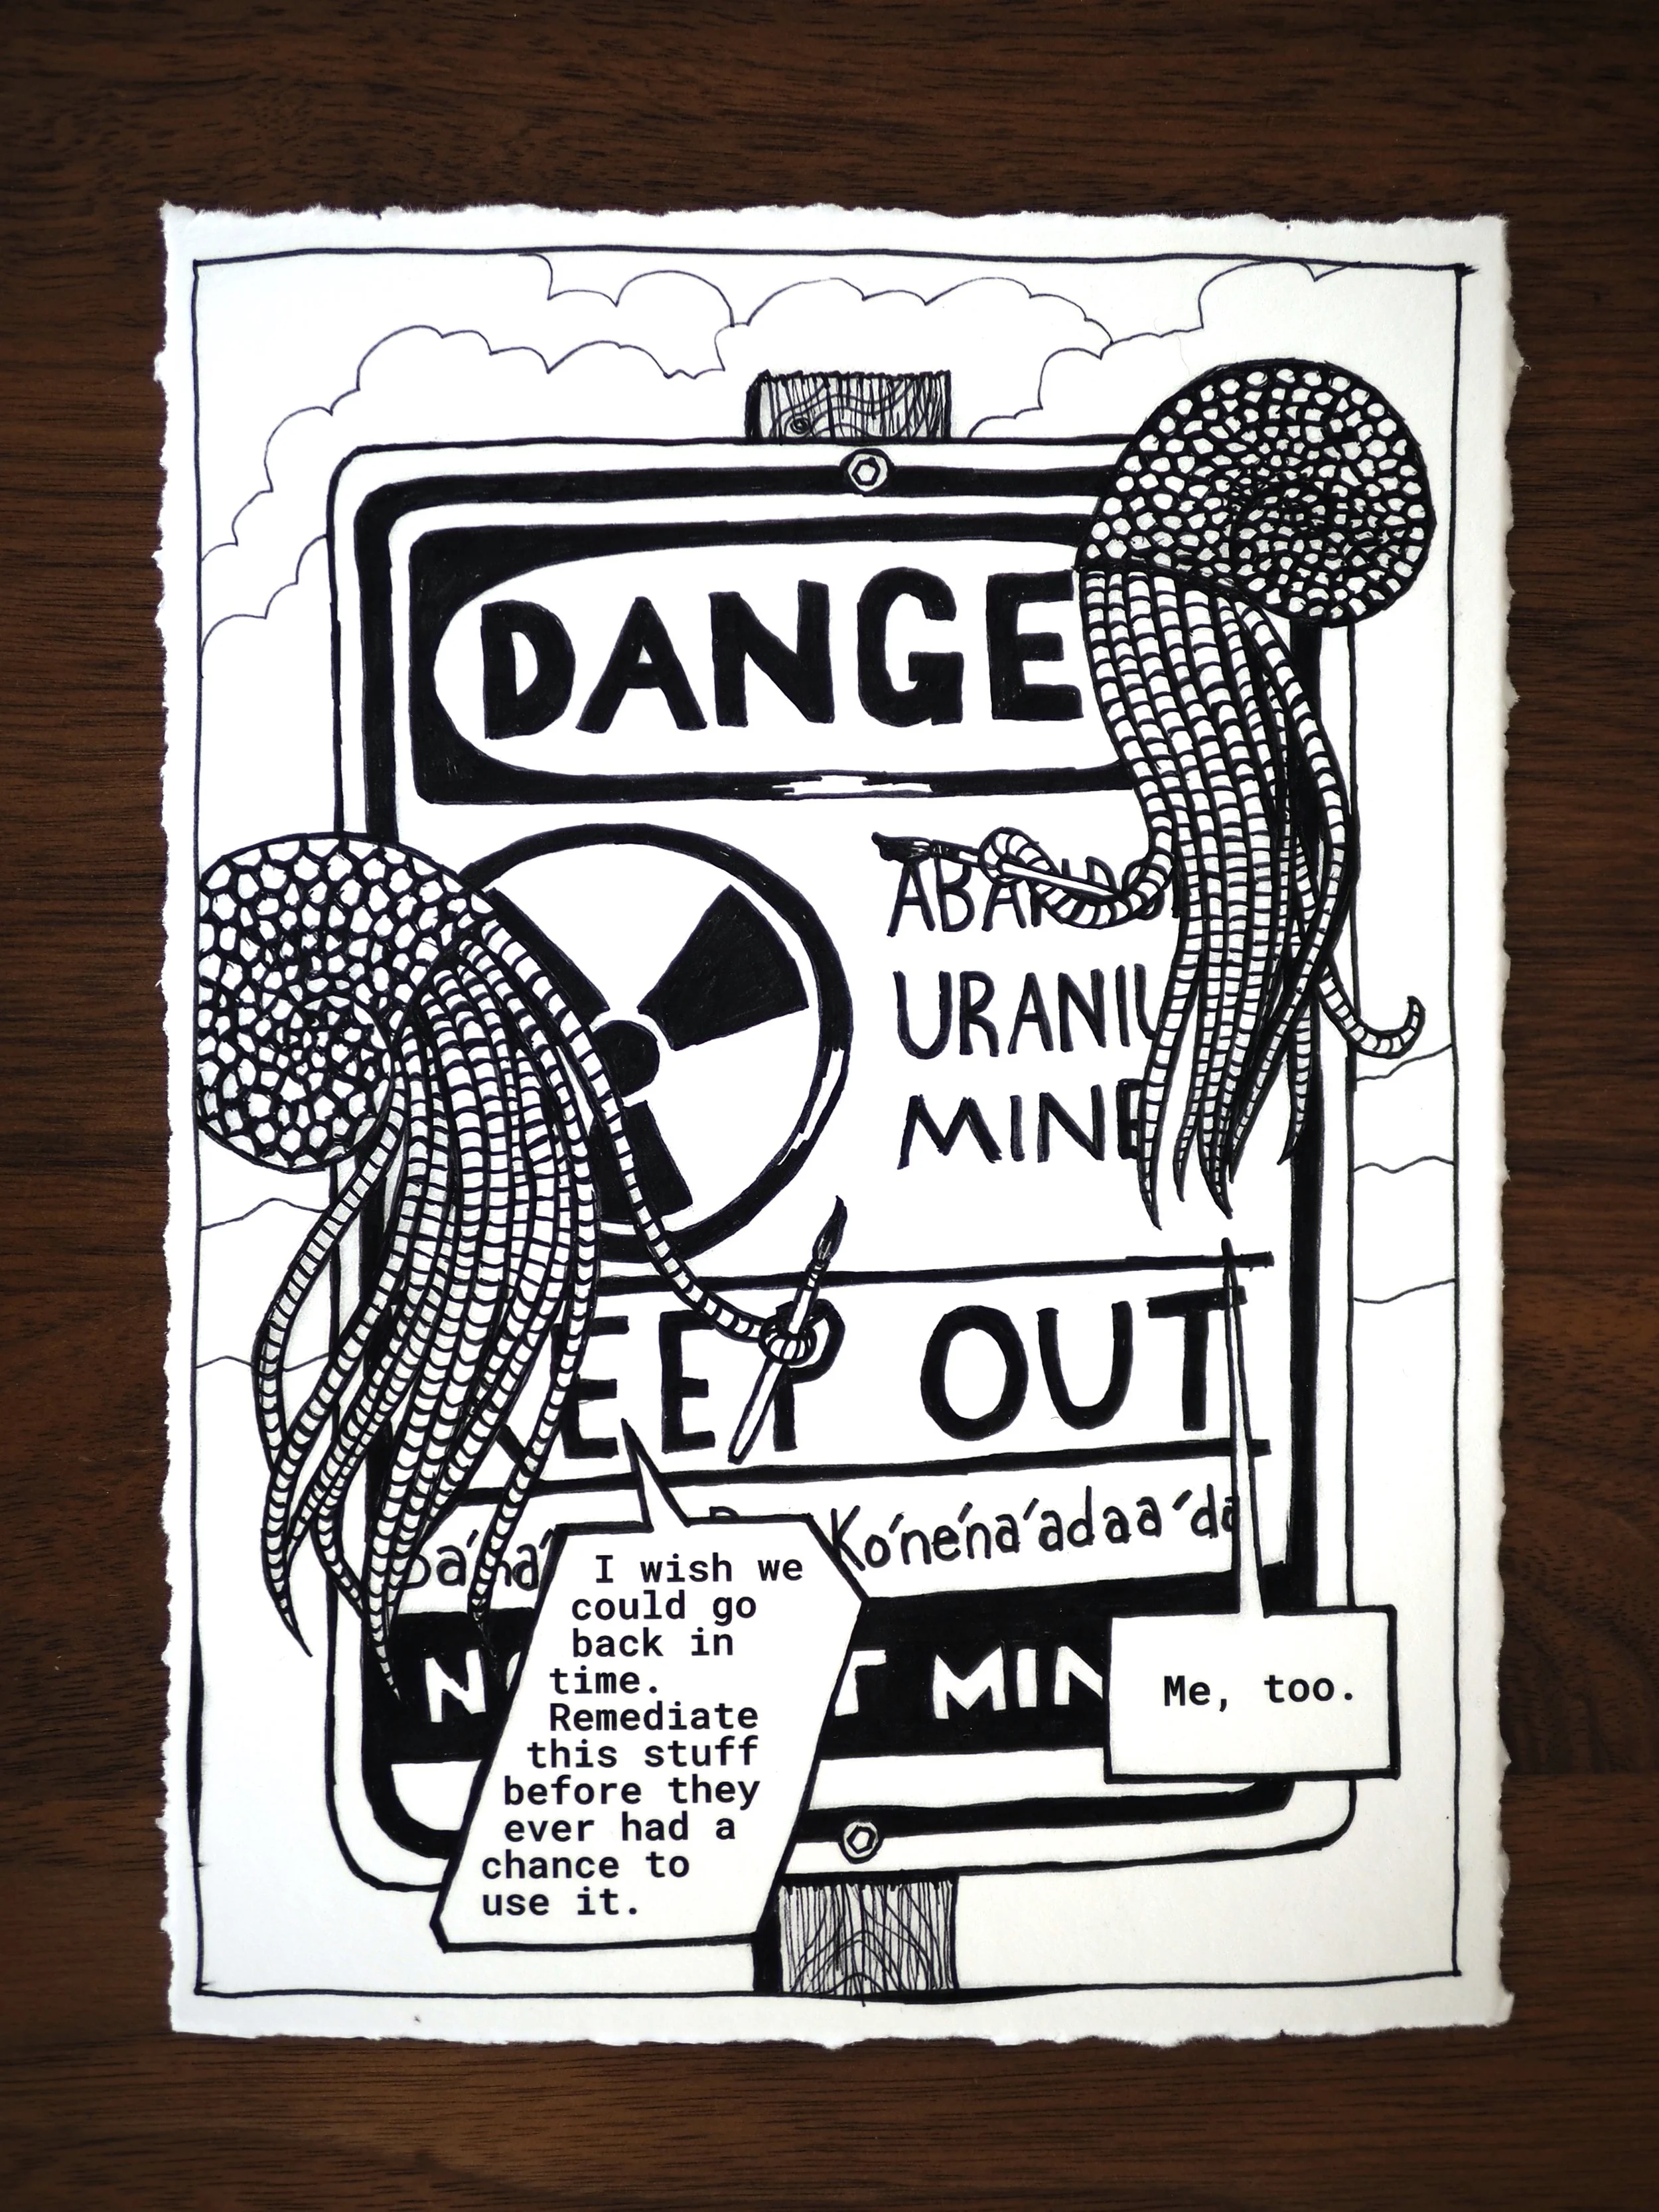 DANGE
ABAND
URANIU
MINE
EEP OUT
Bá'ha' Ko'ne'na'adaa'da
NO T MIN
I wish we
could go
back in
time.
Remediate
this stuff
before they
ever had a
chance to
use it.
Me, too.